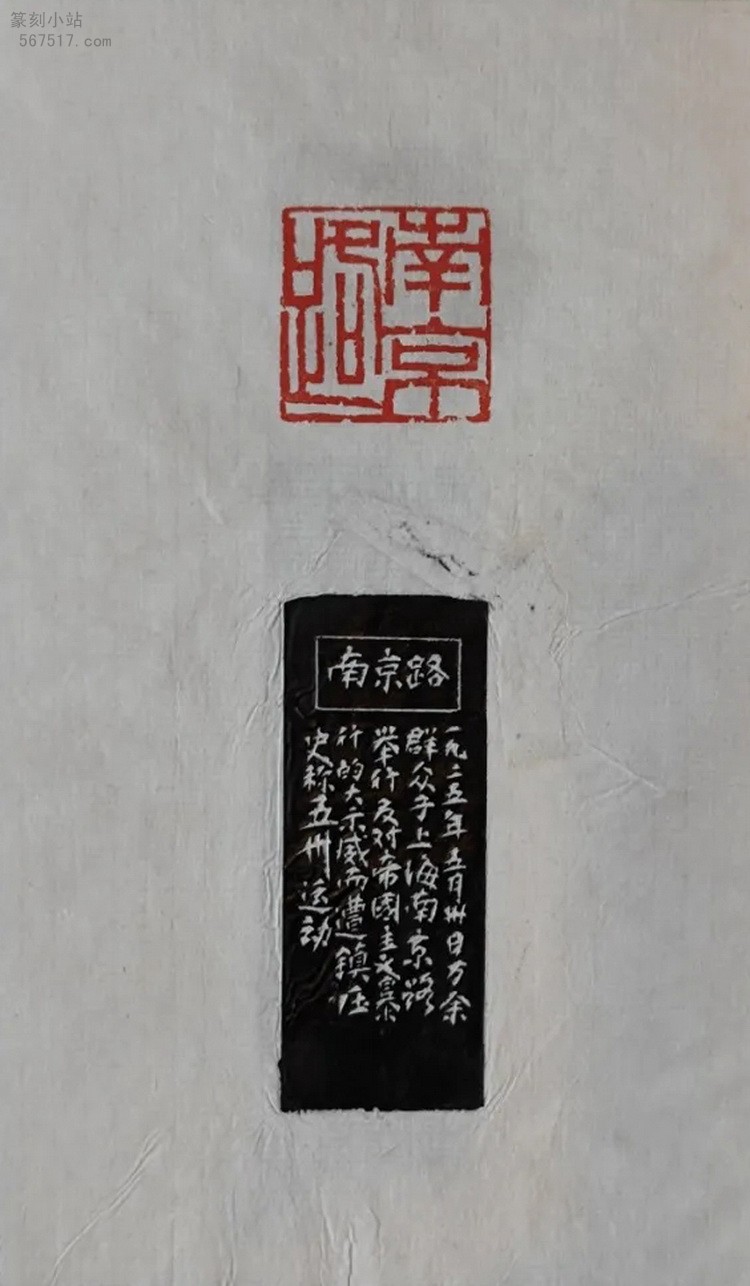 篆刻小站
567517.com
南京
路
南京路
一九二五年五月卅日万余
群众于上海南京路
举行反对帝國主义暴
行的大示威而遭鎮压
史称五卅运动